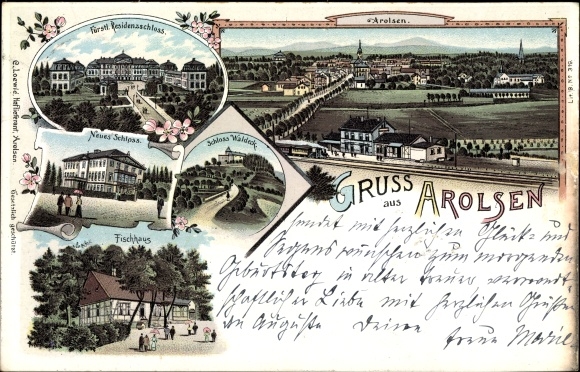 Fürstl. Residenzschloss.
Arolsen.
Neues Schloss.
Schloss Waldeck
Fischhaus
GRUSS
aus
AROLSEN
Lit. B. No. 319.
Gesetzlich geschützt
sendet mit herzlichen Glück- und
Segenswünschen zum morgenden
Geburtstag in alter treuer verwandt-
schaftlicher Liebe mit herzlichen Grüßen
an Auguste Deine
treue